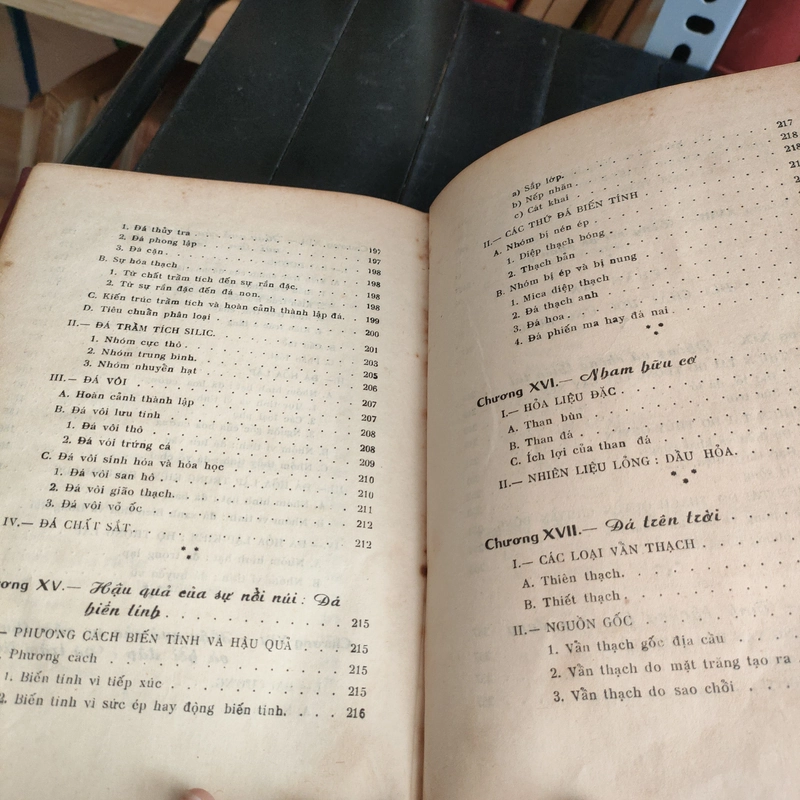 1. Đá thủy tra . . . . . . . . . . 197
2. Đá phong lập . . . . . . . . . . 197
3. Đá cặn . . . . . . . . . . 198
B. Sự hóa thạch . . . . . . . . . . 198
1. Từ chất trầm tích đến sự rắn đặc. . . . . 198
2. Từ sự rắn đặc đến đá non. . . . . . . 198
C. Kiến trúc trầm tích và hoàn cảnh thành lập đá. . 199
D. Tiêu chuẩn phân loại . . . . . . . . 200
II.— ĐÁ TRẦM TÍCH SILIC. . . . . . . . 201
1. Nhóm cực thô . . . . . . . . . . 203
2. Nhóm trung bình. . . . . . . . . . 205
3. Nhóm nhuyễn hạt . . . . . . . . . . 206
III.— ĐÁ VÔI . . . . . . . . . . 207
A. Hoàn cảnh thành lập . . . . . . . . . . 207
B. Đá vôi lưu tính . . . . . . . . . . 208
1. Đá vôi thô . . . . . . . . . . 208
2. Đá vôi trứng cá . . . . . . . . . . 209
C. Đá vôi sinh hóa và hóa học . . . . . . . 210
1. Đá vôi san hô . . . . . . . . . . 210
2. Đá vôi gião thạch. . . . . . . . . . 211
3. Đá vôi vỏ ốc . . . . . . . . . . 212
IV.— ĐÁ CHẤT SẮT. . . . . . . . . . 212
ương XV.— Hậu quả của sự nổi núi : Đá
biến tính . . . . . . . . . . 215
— PHƯƠNG CÁCH BIẾN TÍNH VÀ HẬU QUẢ . . . 215
Phương cách . . . . . . . . . . 215
1. Biến tính vì tiếp xúc . . . . . . . . 215
2. Biến tính vì sức ép hay động biến tính. . . . 216
a) Sắp lớp. . . . . . . . . . 217
b) Nếp nhăn . . . . . . . . . . 218
c) Cát khai . . . . . . . . . . 218
II.— CÁC THỨ ĐÁ BIẾN TÍNH
A. Nhóm bị nén ép . . . . . . . . . .
1. Diệp thạch bóng . . . . . . . . . .
2. Thạch bản . . . . . . . . . .
B. Nhóm bị ép và bị nung . . . . . . . . . .
1. Mica diệp thạch . . . . . . . . . .
2. Đá thạch anh . . . . . . . . . .
3. Đá hoa . . . . . . . . . .
4. Đá phiến ma hay đá nai . . . . . . .
Chương XVI.— Nham hữu cơ
I.— HỎA LIỆU ĐẶC . . . . . . . . . .
A. Than bùn . . . . . . . . . .
B. Than đá . . . . . . . . . .
C. Ích lợi của than đá . . . . . . . . . .
II.— NHIÊN LIỆU LỎNG : DẦU HỎA. . . . .
Chương XVII.— Đá trên trời . . . .
I.— CÁC LOẠI VẪN THẠCH . . . . . . .
A. Thiên thạch. . . . . . . . . .
B. Thiết thạch . . . . . . . . . .
II.— NGUỒN GỐC . . . . . . . . . .
1. Vẫn thạch gốc địa cầu . . . . . .
2. Vẫn thạch do mặt trăng tạo ra .
3. Vẫn thạch do sao chổi . . . .